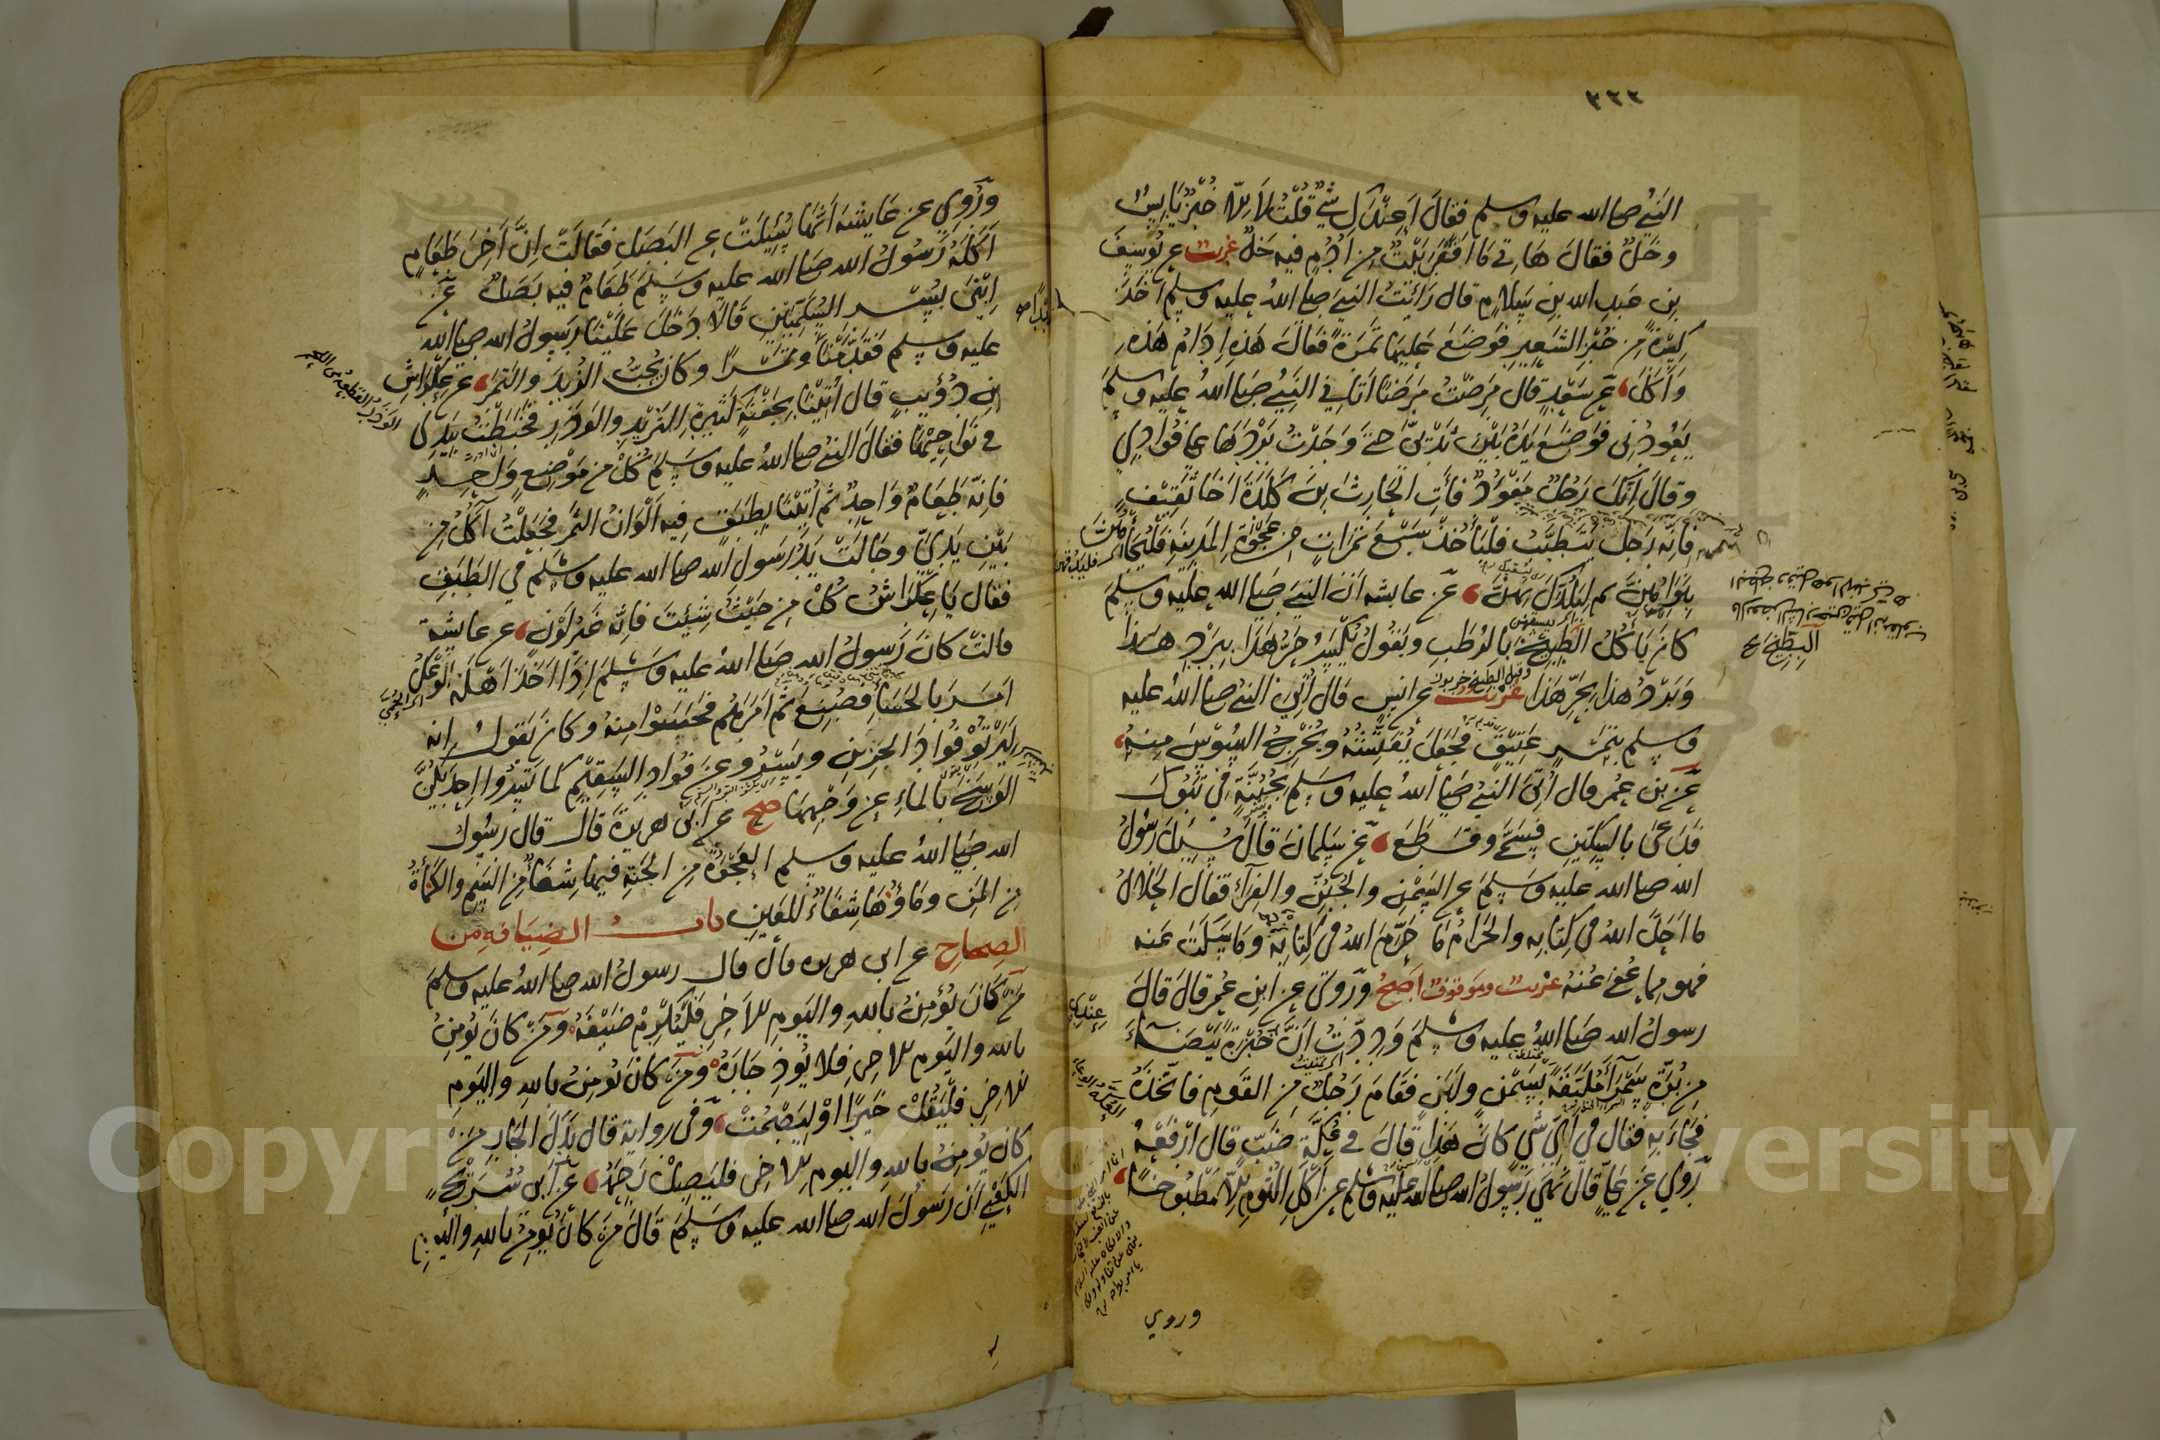 ٣٢٢
النبي صلى الله عليه وسلم فقال اعندك شيء قلت لا الا خبز يابس
وخل فقال هاتي ما اقفر بيت من ادم فيه خل غريب عن يوسف
بن عبد الله بن سلام قال رأيت النبي صلى الله عليه وسلم اخذ
كسرة من خبز الشعير فوضع عليها تمرة فقال هذه ادام هذه
وأكل عن سعد قال مرضت مرضا اتاني النبي صلى الله عليه وسلم
يعودني فوضع يده بين ثديي حتى وجدت بردها على فؤادي
وقال انك رجل مفؤد فأت الحارث بن كلدة اخا ثقيف
فانه رجل يتطبب فليأخذ سبع تمرات من عجوة المدينة فليجأهن
بنواهن ثم ليلدك بهن عن عايشة ان النبي صلى الله عليه وسلم
كان يأكل الطبيخ بالرطب ويقول يكسر حر هذا ببرد هذا
وبرد هذا بحر هذا غريب عن انس قال اتي النبي صلى الله عليه
وسلم بتمر عتيق فجعل يفتشه ويخرج السوس منه
عن بن عمر قال اتي النبي صلى الله عليه وسلم بجبنة في تبوك
فدعى بالسكين فسمى وقطع عن سلمان قال سئل رسول
الله صلى الله عليه وسلم عن السمن والجبن والفراء فقال الحلال
ما احل الله في كتابه والحرام ما حرم الله في كتابه وما سكت عنه
فهو مما عفي عنه غريب وموقوف اصح وروي عن ابن عمر قال قال
رسول الله صلى الله عليه وسلم وددت ان خبزة بيضاء
عندي
من برة سمراء ملبقة بسمن ولبن فقام رجل من القوم فاتخذه
فجاء به فقال في اي شي كان هذا قال في عكة ضب قال ارفعه
روي عن علي قال نهى رسول الله صلى الله عليه وسلم عن اكل الثوم الا مطبوخا
البطيخ
وروي
وروي عن عايشة انها سئلت عن البصل فقالت ان آخر طعام
اكله رسول الله صلى الله عليه وسلم طعام فيه بصل عن
ابني بسر السلميين قالا دخل علينا رسول الله صلى الله
عليه وسلم فقدمنا زبدا وتمرا وكان يحب الزبد والتمر عن عكراش
بن ذؤيب قال اتينا بجفنة كثيرة الثريد والوذر فخبطت بيدي
في نواحيها فقال النبي صلى الله عليه وسلم كل من موضع واحد
فانه طعام واحد ثم اتينا بطبق فيه الوان التمر فجعلت آكل من
بين يدي وجالت يد رسول الله صلى الله عليه وسلم في الطبق
فقال يا عكراش كل من حيث شئت فانه غير لون عن عايشة
قالت كان رسول الله صلى الله عليه وسلم اذا اخذ اهله الوعك
امر بالحساء فصنع ثم امرهم فحسوا منه وكان يقول انه
ليرتو فؤاد الحزين ويسرو عن فؤاد السقيم كما تسروا احديكن
الوسخ بالماء عن وجهها صح عن ابي هريرة قال قال رسول
الله صلى الله عليه وسلم العجوة من الجنة فيها شفاء من السم والكمأة
من المن وماؤها شفاء للعين باب الضيافة من
الصحاح عن ابي هريرة قال قال رسول الله صلى الله عليه وسلم
من كان يؤمن بالله واليوم الآخر فليكرم ضيفه ومن كان يؤمن
بالله واليوم الآخر فلا يؤذ جاره ومن كان يؤمن بالله واليوم
الآخر فليقل خيرا او ليصمت وفي رواية قال بدل الجار من
كان يؤمن بالله واليوم الآخر فليصل رحمه عن ابي شريح
الكعبي ان رسول الله صلى الله عليه وسلم قال من كان يؤمن بالله واليوم